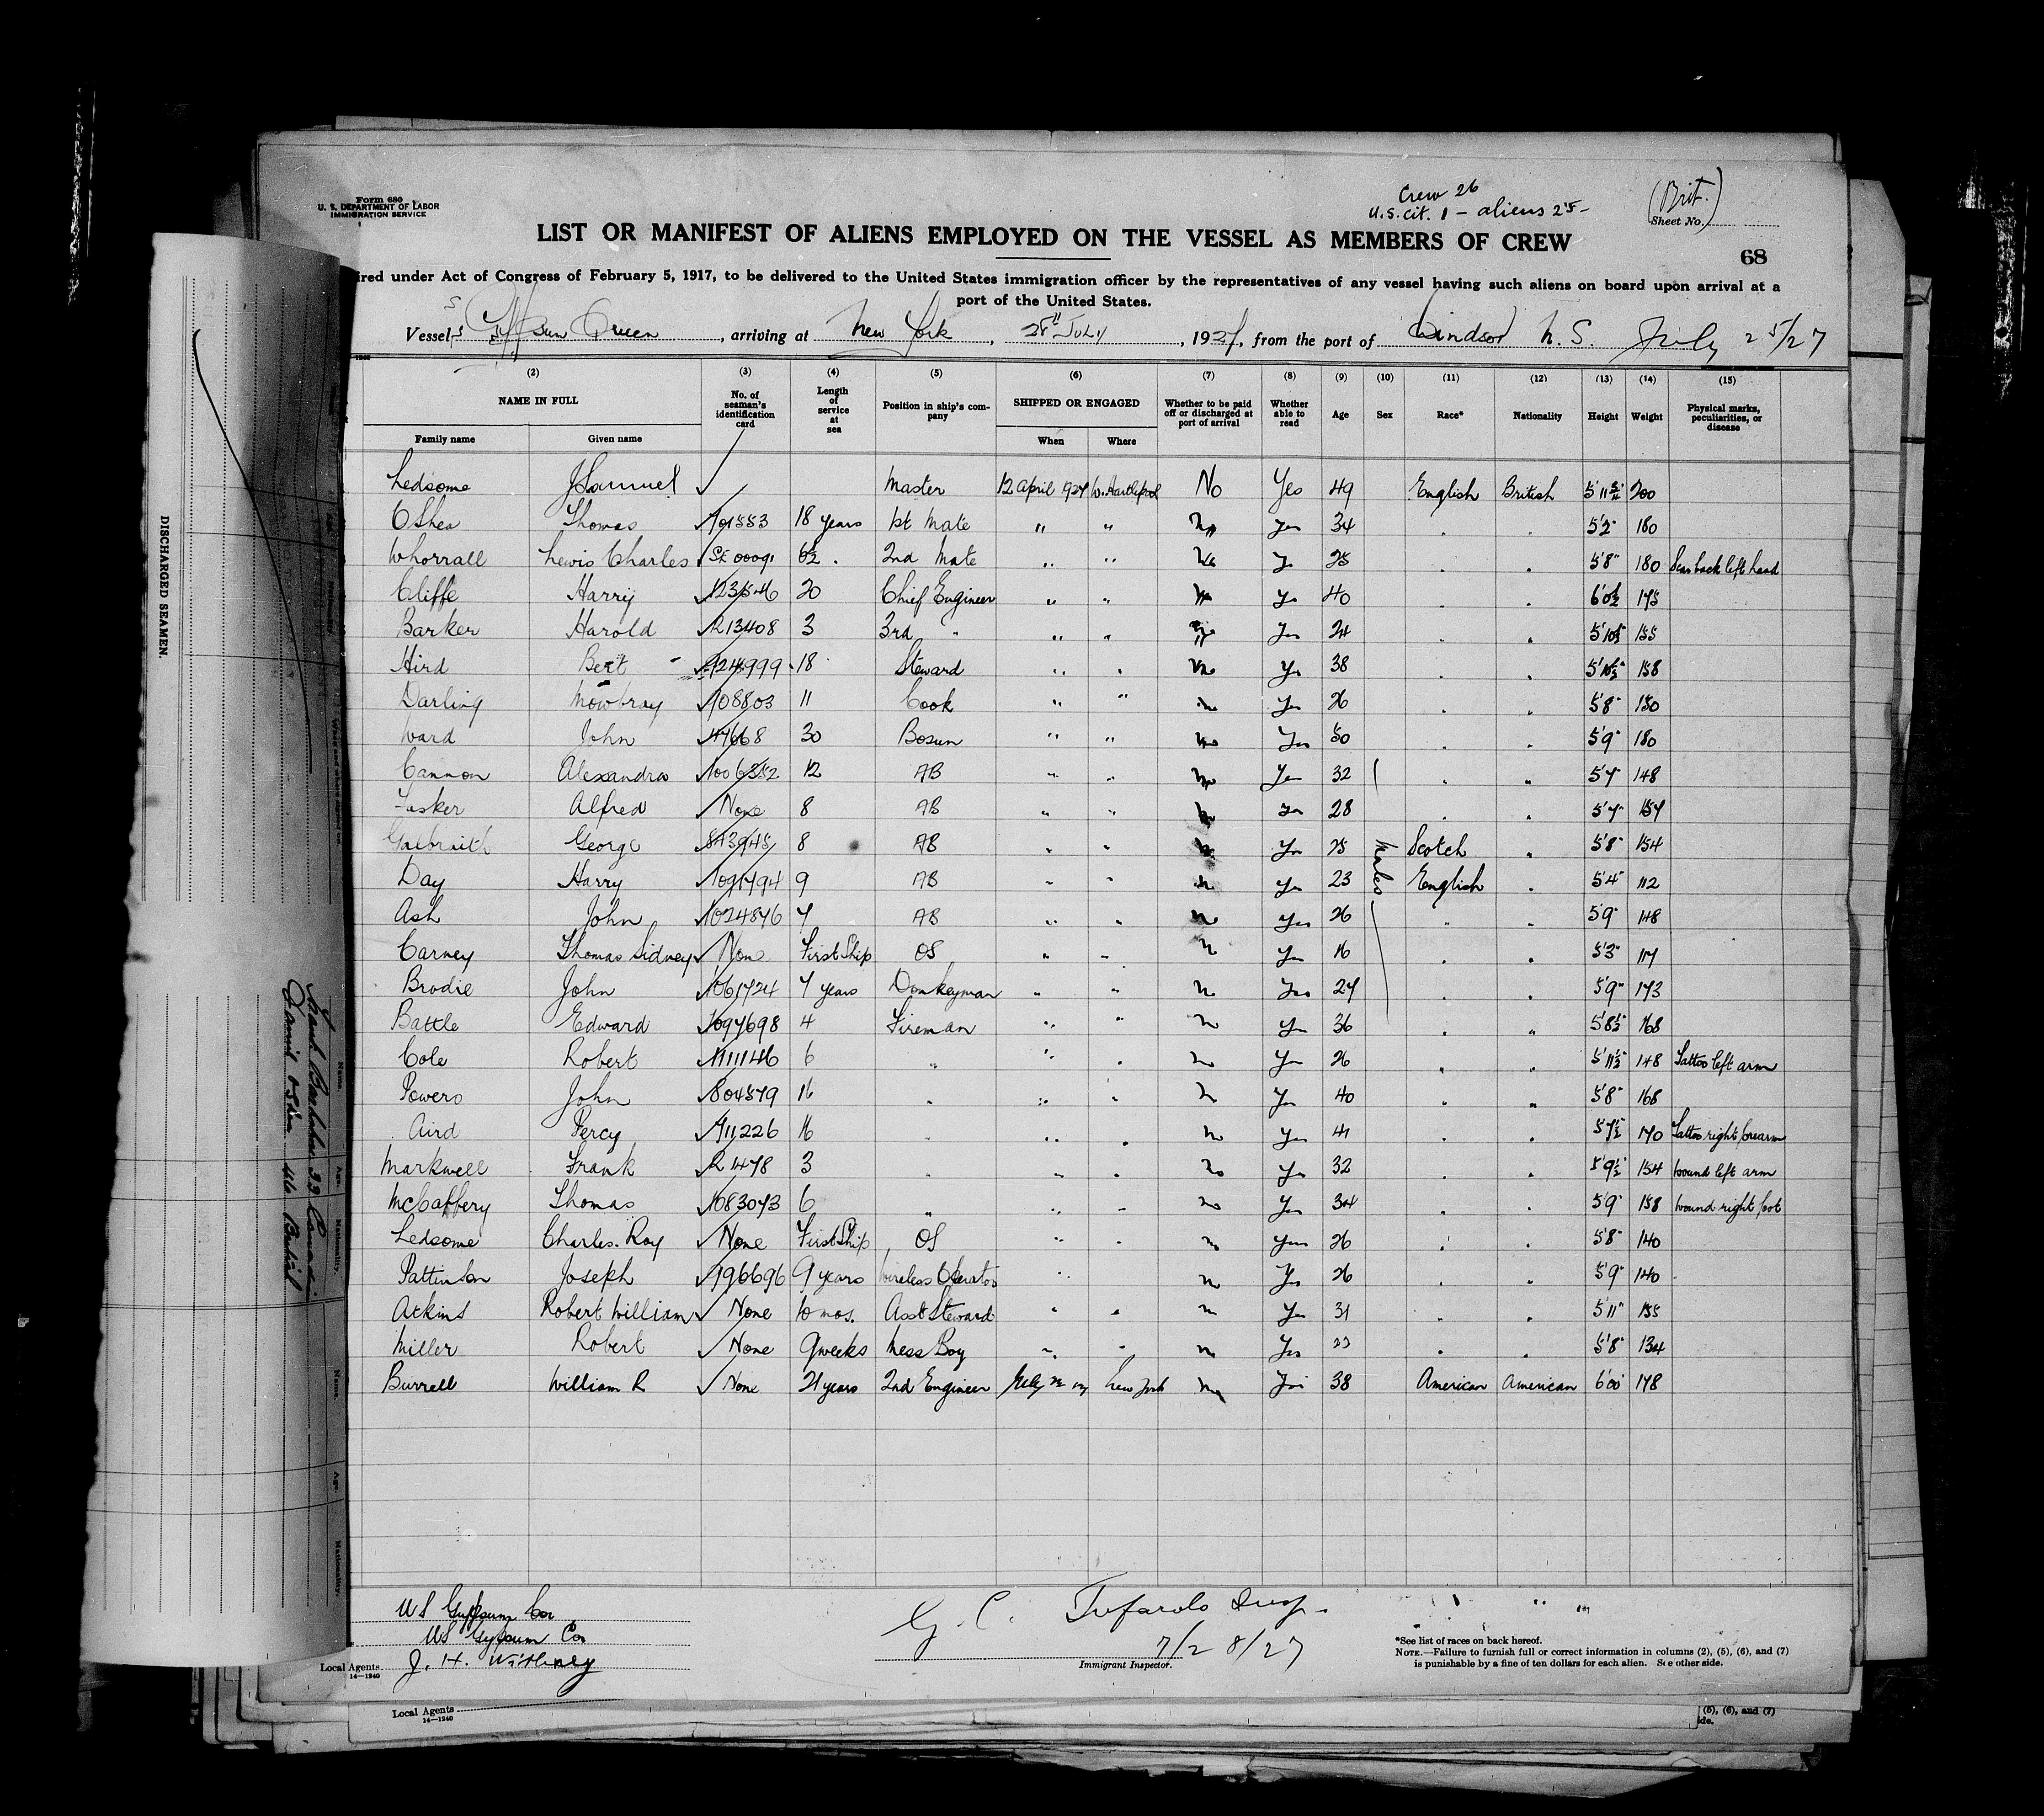 Form 680
U. S. DEPARTMENT OF LABOR
IMMIGRATION SERVICE
Crew 26
U.S. cit. 1 - aliens 25-
(Brit.)
Sheet No.
68
LIST OR MANIFEST OF ALIENS EMPLOYED ON THE VESSEL AS MEMBERS OF CREW
ired under Act of Congress of February 5, 1917, to be delivered to the United States immigration officer by the representatives of any vessel having such aliens on board upon arrival at a
port of the United States.
Vessel Gypsum Queen, arriving at New York, 28" July, 1927, from the port of Windsor N. S. July 25/27
(2) (3) (4) (5) (6) (7) (8) (9) (10) (11) (12) (13) (14) (15)
NAME IN FULL No. of seaman's identification card Length of service at sea Position in ship's company SHIPPED OR ENGAGED Whether to be paid off or discharged at port of arrival Whether able to read Age Sex Race* Nationality Height Weight Physical marks, peculiarities, or disease
Family name Given name When Where
Ledsome J Samuel Master 12 April 1927 W. Hartlepool No Yes 49 English British 5'11 200
O Shea Thomas 18 years 1st Mate " " No Yes 34 5'2" 180
Whorrall Lewis Charles 6½ 2nd Mate " " No Yes 25 5'8" 180 Scar back left hand
Cliffe Harry 20 Chief Engineer " " Yes 40 6'0½ 175
Barker Harold R13408 3 3rd " " " Yes 24 155
Hird Bert 18 Steward " " No Yes 38 5'10½" 158
Darling Mowbray 11 Cook " " No Yes 26 5'8" 150
Ward John 30 Bosun " " No Yes 50 5'9" 180
Cannon Alexandra 12 AB " " No Yes 32 5'7" 148
Tasker Alfred None 8 AB " " No Yes 28 5'7" 157
Galbraith George 8 AB " " No Yes 25 Males Scotch " 5'8" 154
Day Harry 1091794 9 AB " " No Yes 23 English " 5'4" 112
Ash John 1024876 7 AB " " No Yes 26 " " 5'9" 148
Carney Thomas Sidney None First Ship OS " " No Yes 16 5'3" 117
Brodie John 1061724 7 years Donkeyman " " No Yes 27 5'9" 173
Battle Edward 1097698 4 Fireman " " No Yes 36 5'8½" 168
Cole Robert 6 " " " No Yes 26 5'11½" 148 Tattoo left arm
Powers John 804579 16 " " " No Yes 40 5'8" 168
Aird Percy 911226 16 " " " No Yes 41 5'7½" 170 Tattoo right forearm
Markwell Frank R 1478 3 " " " No Yes 32 5'9½" 154 Wound left arm
McCaffery Thomas 1083073 6 " " " No Yes 34 5'9" 158 Wound right foot
Ledsome Charles. Roy None First Ship OS " " No Yes 26 5'8" 140
Pattinson Joseph 196696 9 years Wireless Operator " No Yes 26 5'9" 140
Atkins Robert William None 10 mos. Asst Steward " " No Yes 31 5'11" 155
Miller Robert None 9 weeks Mess Boy " " No Yes 5'8" 134
Burrell William R None 21 years 2nd Engineer New York No Yes 38 American American 6'00" 178
US Gypsum Co
US Gypsum Co
J. H. Withney
Local Agents
14—1240
G. C. Tufarolo Insp.
7/28/27
Immigrant Inspector.
*See list of races on back hereof.
NOTE.—Failure to furnish full or correct information in columns (2), (5), (6), and (7)
is punishable by a fine of ten dollars for each alien. See other side.
Local Agents
14—1240
(5), (6), and (7)
ide.
DISCHARGED SEAMEN.
Name. Age. Nationality.
Name. Age. Nationality.